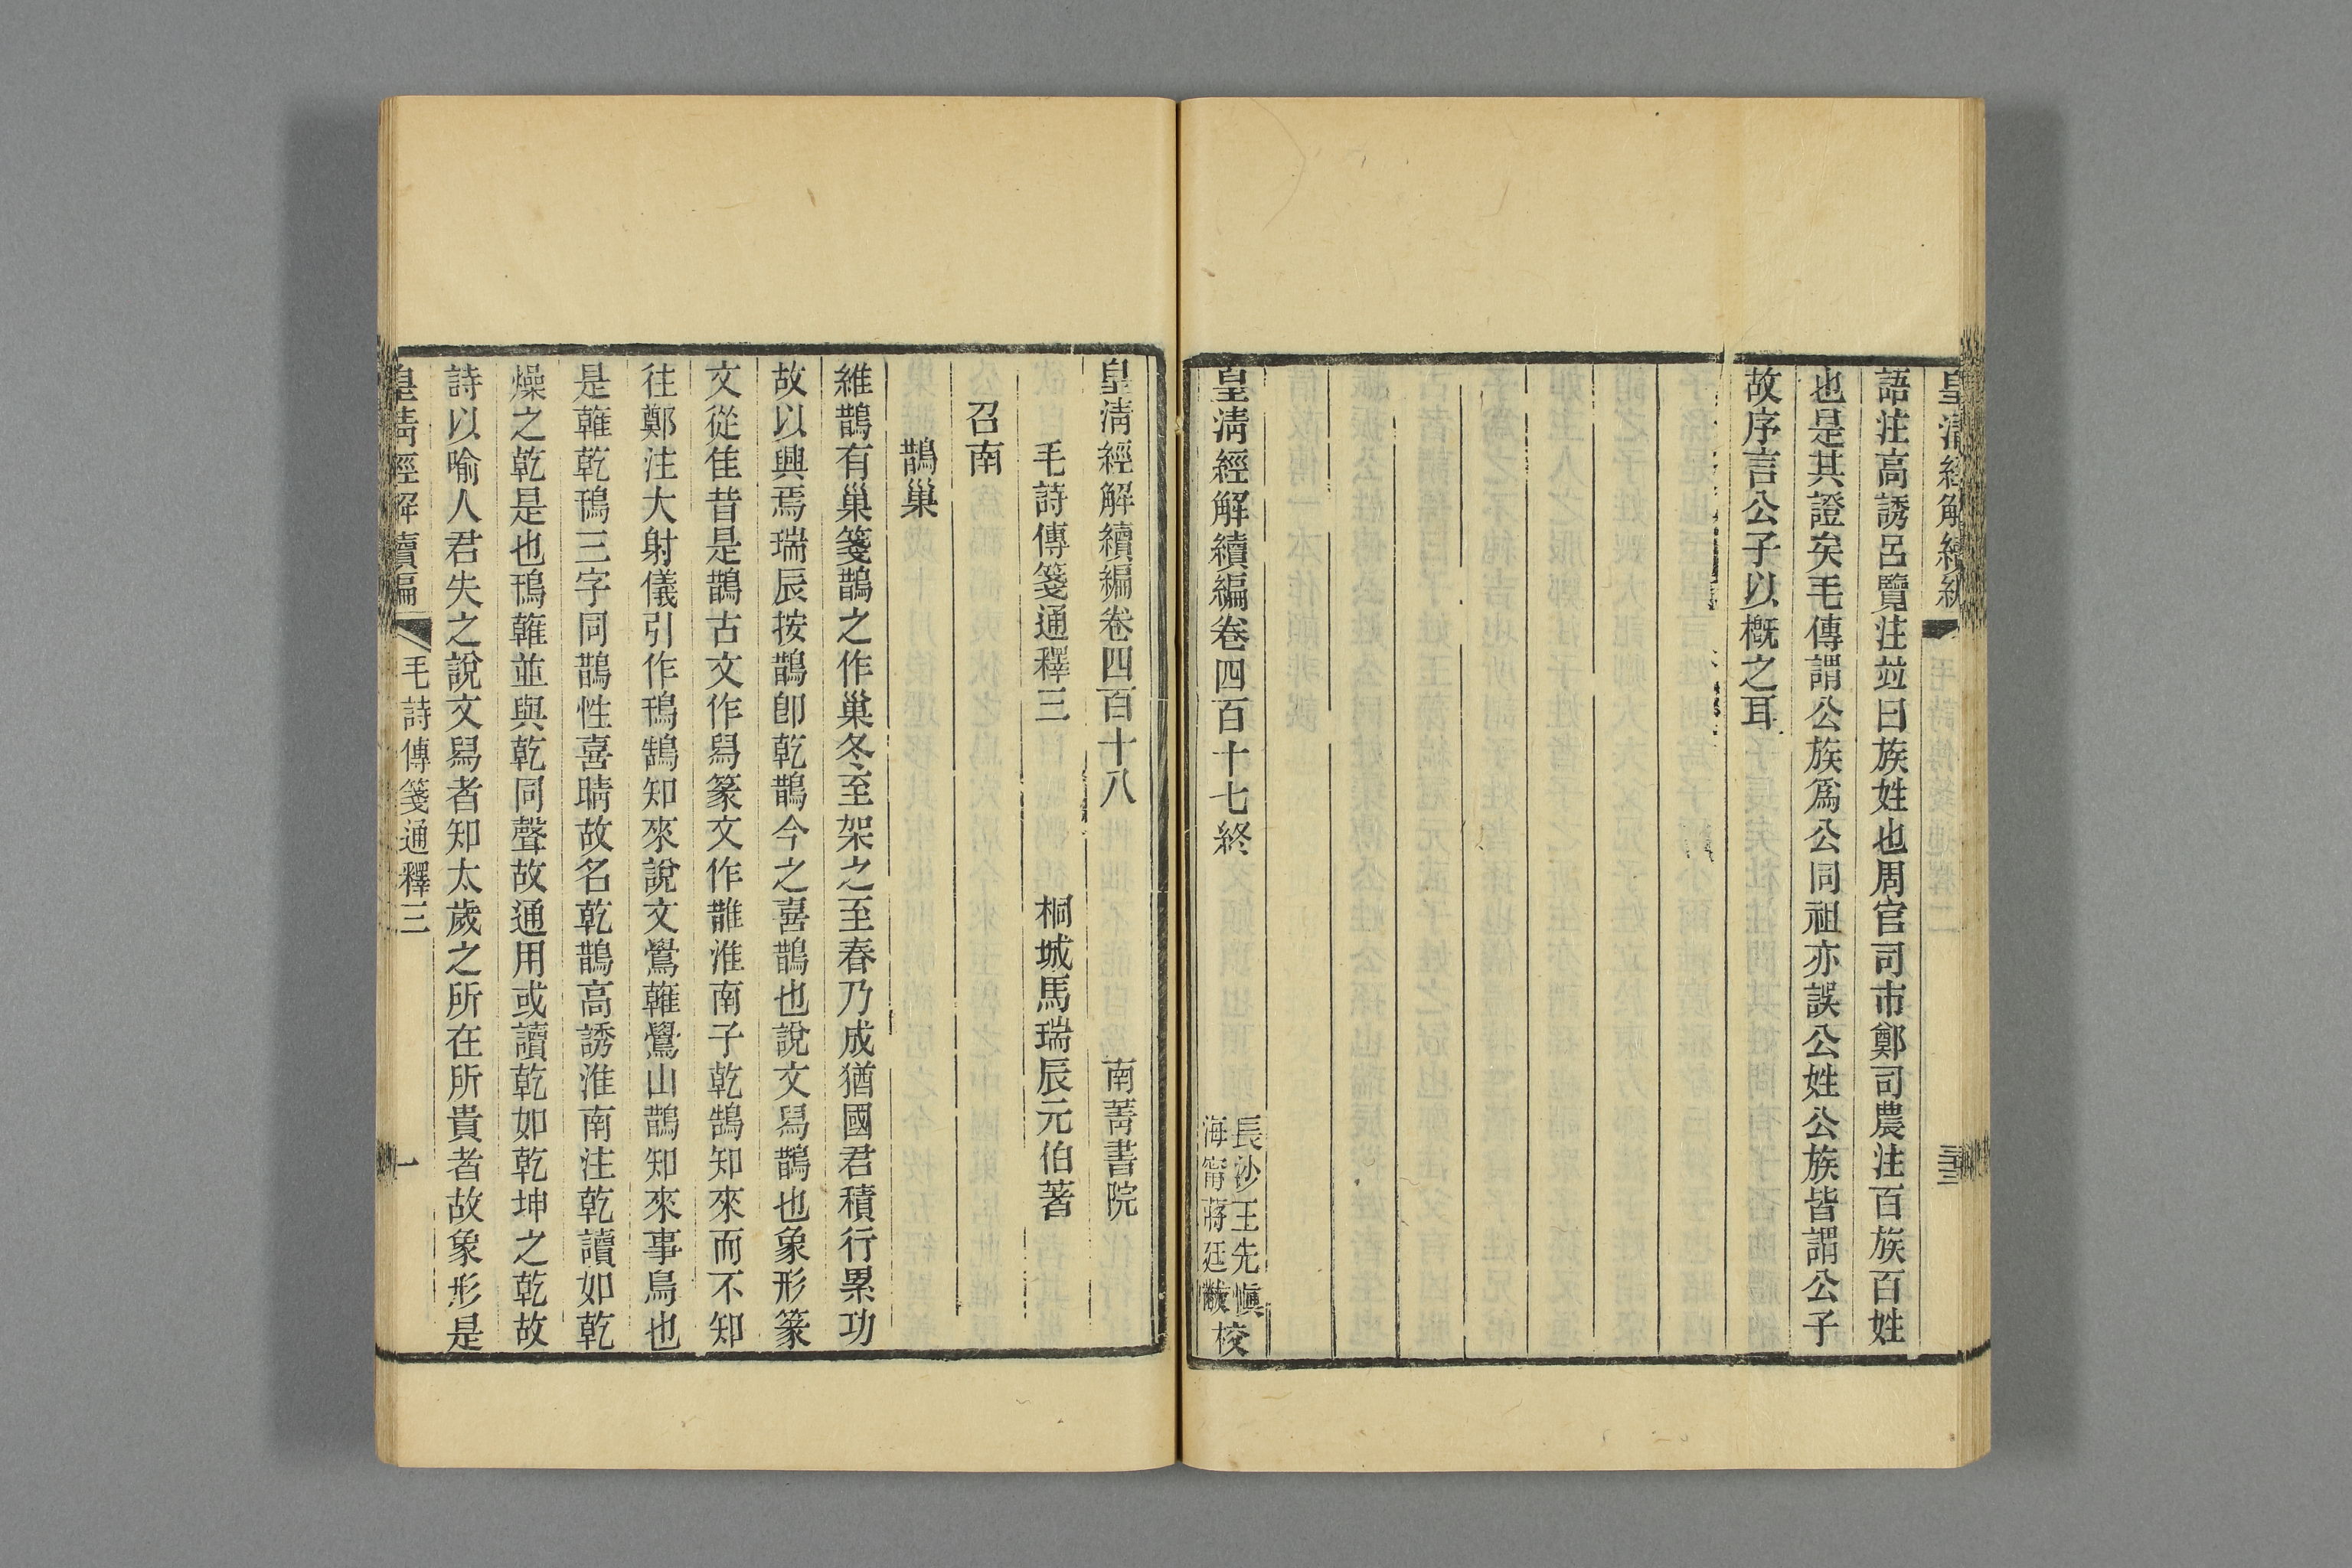 皇淸經解續編
毛詩傳箋通釋二
語注高誘呂覽注竝曰族姓也周官司市鄭司農注百族百姓
也是其證矣毛傳謂公族爲公同祖亦誤公姓公族皆謂公子
故序言公子以槪之耳
皇淸經解續編卷四百十七終
長沙王先愼
海甯蔣廷黻
校
皇淸經解續編卷四百十八
南菁書院
毛詩傳箋通釋三
桐城馬瑞辰元伯著
召南
鵲巢
維鵲有巢箋鵲之作巢冬至架之至春乃成猶國君積行累功
故以興焉瑞辰按鵲卽乾鵲今之喜鵲也說文舄鵲也象形篆
文從隹昔是鵲古文作舄篆文作䧿淮南子乾鵠知來而不知
往鄭注大射儀引作鳱鵠知來說文鷽雗鷽山鵲知來事鳥也
是雗乾鳱三字同鵲性喜晴故名乾鵲高誘淮南注乾讀如乾
燥之乾是也鳱雗並與乾同聲故通用或讀乾如乾坤之乾故
詩以喻人君失之說文舄者知太歲之所在所貴者故象形是
皇淸經解續編
毛詩傳箋通釋三
一